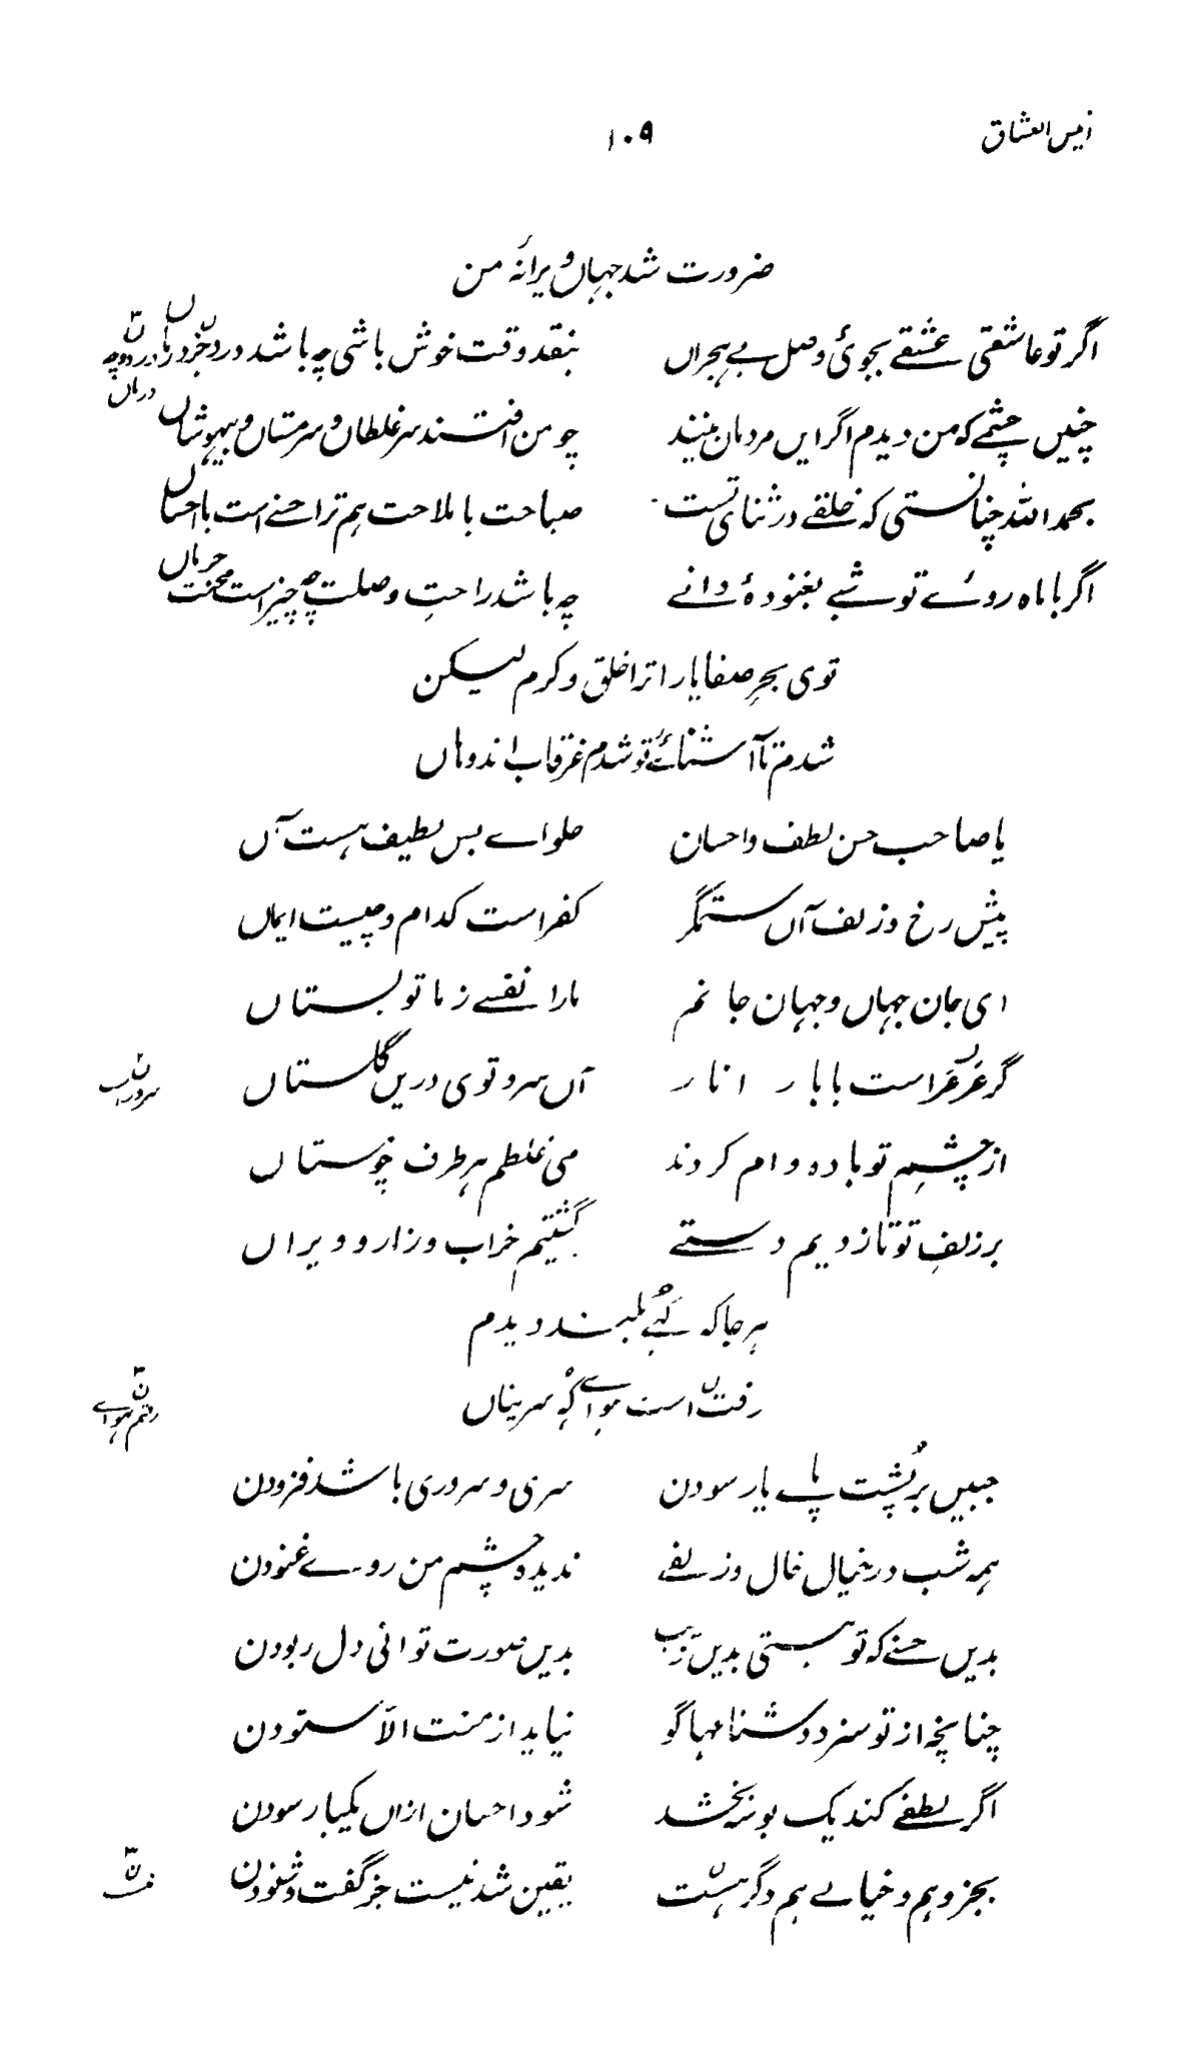 انیس العشاق ۱۰۹
ضرورت شد جہاں ویرانۂ من
اگر تو عاشقی عشقے بجوئ وصل بے ہجراں بنقد وقت خوش باشی چہ باشد درد
چنیں چشمے کہ من دیدم اگر ایں مردمان بینند چو من افتند سر غلطان و سرمستان و بیہوشاں
بحمد اللہ چنانستی کہ خلقے در ثنای تست صباحت با ملاحت ہم ترا حسنے است با احساں
اگر با ماہ روئے تو شبے بغنودۂ دانے چہ باشد راحتِ وصلت چہ چیز است محنت حرماں
توی بحرِ صفا یارا ترا خلق و کرم لیکن
شدم تا آشنائے تو شدم غرقاب اندوہاں
یا صاحب حسن لطف و احسان حلواے بس لطیف ہست آں
پیش رخ و زلف آں ستمگر کفر است کدام و چیست ایماں
ای جان جہاں و جہان جانم مارا نفسے ز ما تو بستاں
گر عرعر است بابار انار آں سرو توی دریں گلستاں
از چشمِ تو بادہ وام کردند می غلطم ہر طرف چو مستاں
بر زلفِ تو تا زدیم دستے گشتیم خراب و زار و ویراں
ہر جا کہ کہے بلند دیدم
رفت است ہواے کہ سریناں
ن رفتم ہواے
جبیں بر پُشت پاے یار سودن سری و سروری باشد فزودن
ہمہ شب در خیال خال و زلفے ندیدہ چشم من روے غنودن
بدیں حسنے کہ تو ہستی بدیں زیب بدیں صورت توانی دل ربودن
چنانچہ از تو سزد دشنامہا گو نیاید از منت الا ستودن
اگر لطفے کند یک بوسہ بخشد شود احسان ازاں یکبار سودن
بجز وہم و خیالے ہم دگر ہست یقین شد نیست جز گفت و شنودن